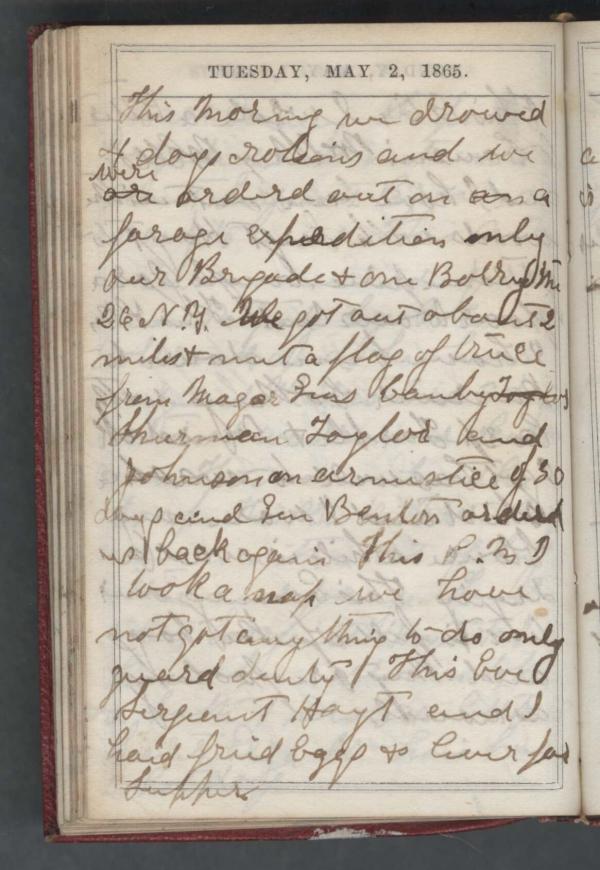 TUESDAY, MAY 2, 1865.
This Morning we drowed
4 days rotions and we
were
are orderd out on an a
forage expedition only
our Brigade & one Battry the
26 N.Y. We got out about 2
miles & mut a flag of truce
from Magor Gens Canby Taylor
Shurman Taylor and
Johnson on armustice of 30
days and Gen Benton orderd
us back again This P.M I
took a nap we have
not got any thing to do only
guard duty This Eve
Sergeant Hayt and I
haid fried Eggs & liver for
Supper